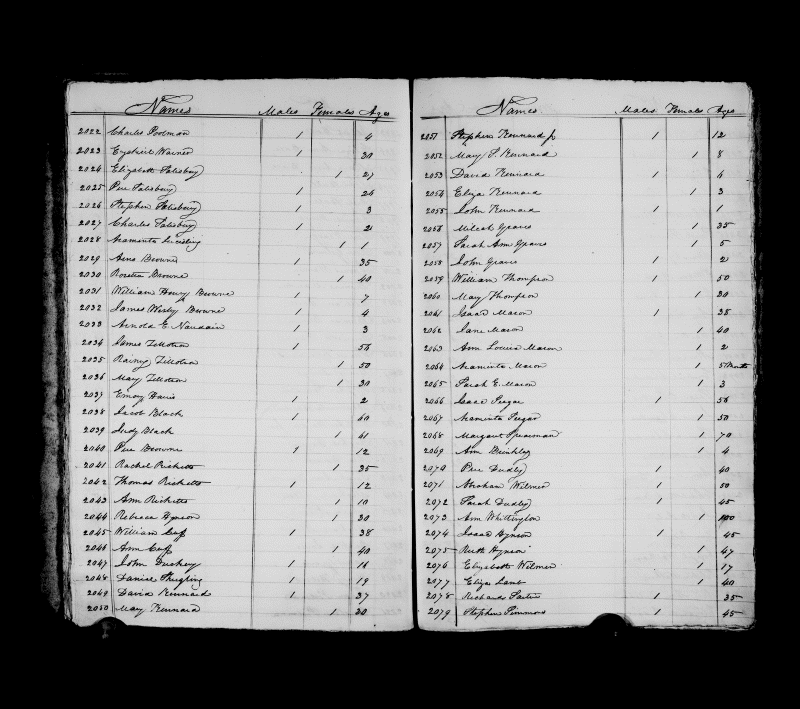 Names Males Females Ages
2022 Charles Poolman 1 4
2023 Ezekiel Warner 1 30
2024 Elizabeth Salisbury 1 27
2025 Pere Salisbury 1 26
2026 Stephen Salisbury 1 3
2027 Charles Salisbury 1 2
2028 Araminta 1 1
2029 Browne 1 35
2030 Rosetta Browne 1 40
2031 William Henry Browne 1 7
2032 James Wesly Browne 1 4
2033 Arnold E. Naudain 1 3
2034 James Tillotson 1 56
2035 Rainy Tillotson 1 50
2036 May Tillotson 1 30
2037 Emory Haris 1 2
2038 Jacob Black 1 60
2039 Judy Black 1 61
2040 Pere Browne 1 12
2041 Rachel Ricketts 1 35
2042 Thomas Ricketts 1 12
2043 Ann Ricketts 1 10
2044 Rebecca Hynson 1 30
2045 William Cuff 1 38
2046 Ann Cuff 1 40
2047 John Duckery 1 16
2048 Daniel 1 19
2049 David Kennard 1 37
2050 May Kennard 1 30
Names Males Females Ages
2051 Stephen Kennard jr 1 12
2052 May S. Kennard 1 8
2053 David Kennard 1 4
2054 Eliza Kennard 1 3
2055 John Kennard 1 1
2056 Milcah Graves 1 35
2057 Sarah Ann Graves 1 5
2058 John Graves 1 2
2059 William Thompson 1 50
2060 May Thompson 1 30
2061 Isaac Mason 1 38
2062 Jane Mason 1 40
2063 Ann Louisa Mason 1 2
2064 Araminta Mason 1 5 Months
2065 Sarah E. Mason 1 3
2066 Isaac Segar 1 56
2067 Araminta Segar 1 50
2068 Margaret Spearman 1 70
2069 Ann Brinkley 1 4
2070 Pere Dudley 1 40
2071 Abraham Wilmer 1 50
2072 Sarah Dudley 1 45
2073 Ann Whittington 1 100
2074 Isaac Hynson 1 45
2075 Ruth Hynson 1 47
2076 Elizabeth Wilmer 1 17
2077 Eliza Lamb 1 40
2078 Richard 1 35
2079 Stephen Simmons 1 45